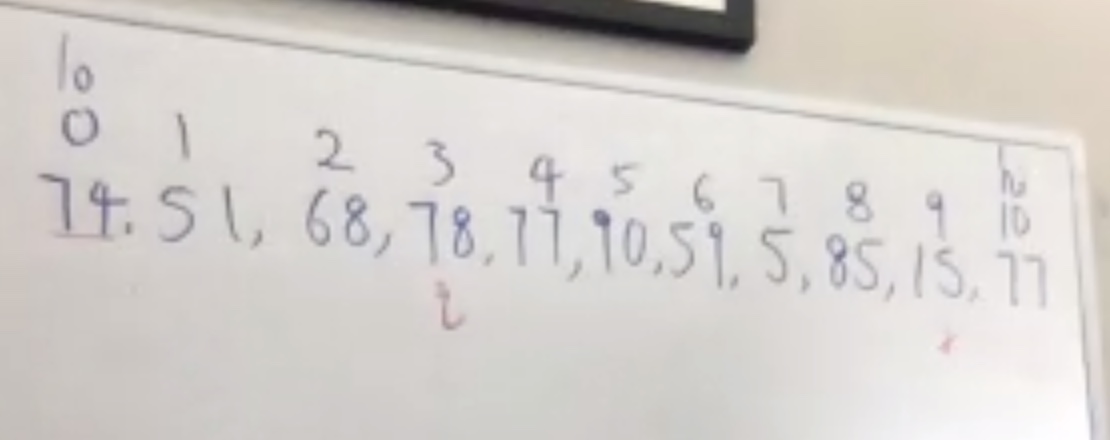 lo
0 1 2 3 4 5 6 7 8 9 10
74, 51, 68, 78, 77, 90, 59, 5, 85, 15, 77
i